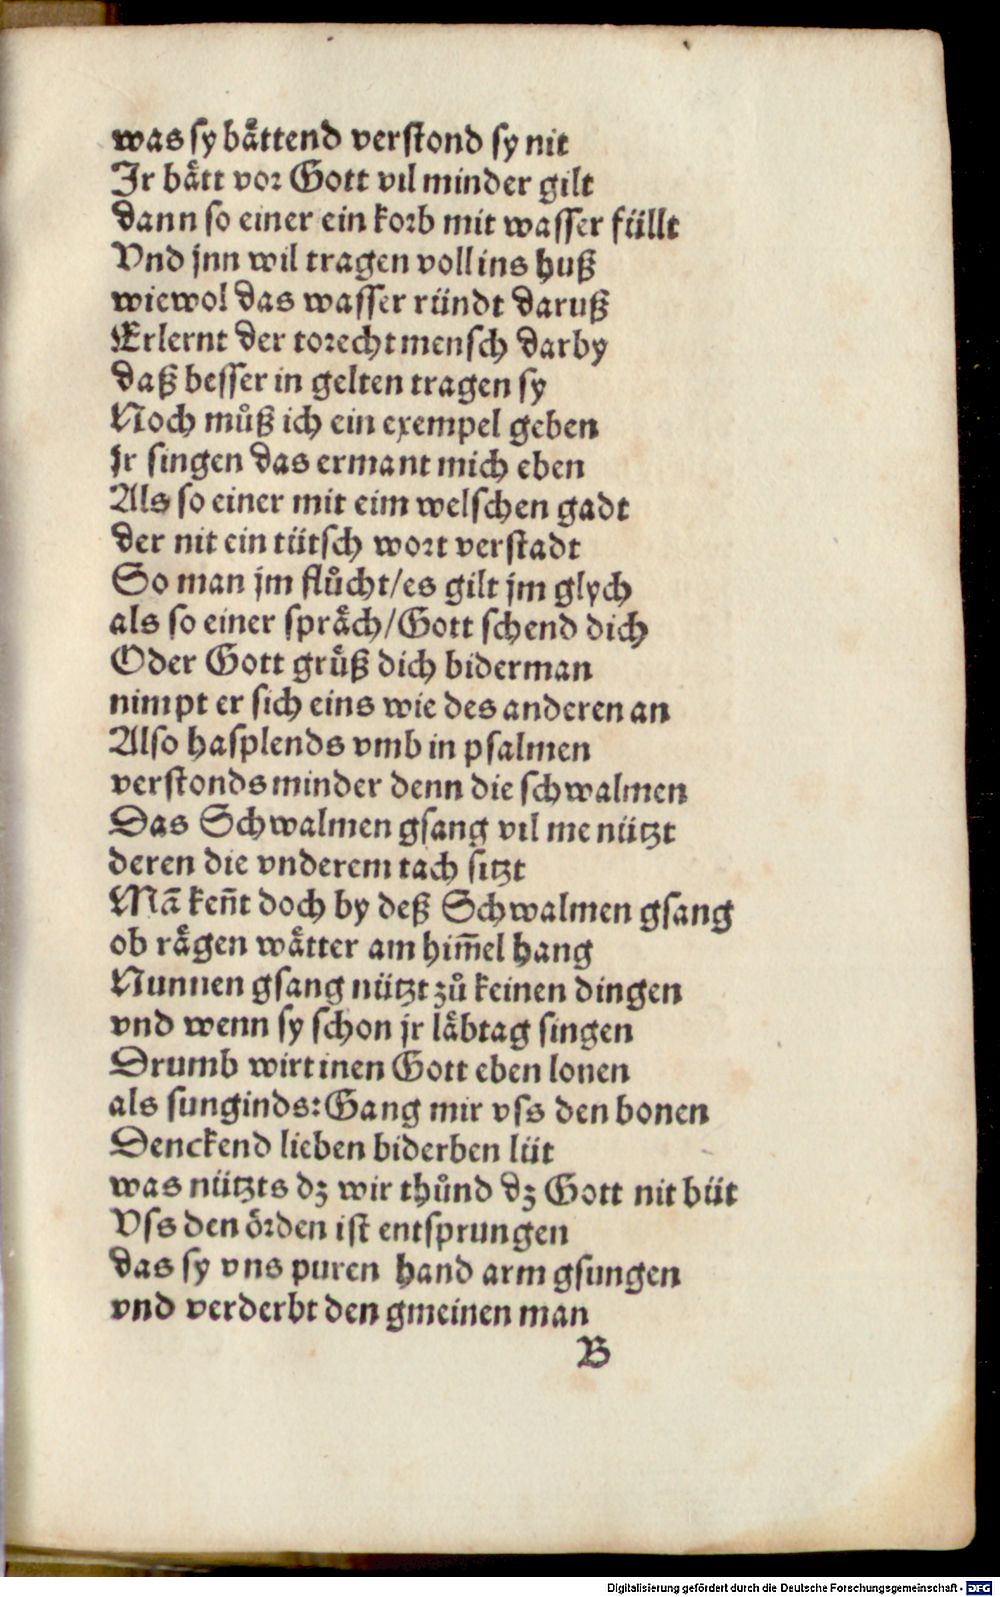 was sy baͤttend verstond sy nit
Jr baͤtt vor Gott vil minder gilt
dann so einer ein korb mit wasser füllt
Vnd jnn wil tragen voll ins huß
wiewol das wasser ründt daruß
Erlernt der torecht mensch darby
daß besser in gelten tragen sy
Noch muͦß ich ein exempel geben
jr singen das ermant mich eben
Als so einer mit eim welschen gadt
der nit ein tütsch wort verstadt
So man jm fluͦcht/es gilt jm glych
als so einer spraͤch/Gott schend dich
Oder Gott gruͤß dich biderman
nimpt er sich eins wie des anderen an
Also hasplends vmb in psalmen
verstonds minder denn die schwalmen
Das Schwalmen gsang vil me nützt
deren die vnderem tach sitzt
Mā keñt doch by deß Schwalmen gsang
ob raͤgen waͤtter am him̄el hang
Nunnen gsang nützt zuͦ keinen dingen
vnd wenn sy schon jr laͤbtag singen
Drumb wirt inen Gott eben lonen
als sunginds:Gang mir vss den bonen
Denckend lieben biderben lüt
was nützts dz wir thuͦnd dz Gott nit büt
Vss den oͤrden ist entsprungen
das sy vns puren hand arm gsungen
vnd verderbt den gmeinen man
B
Digitalisierung gefördert durch die Deutsche Forschungsgemeinschaft - DFG